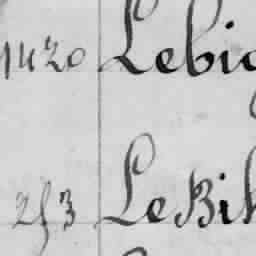 1420 Lebi
253 LeBih